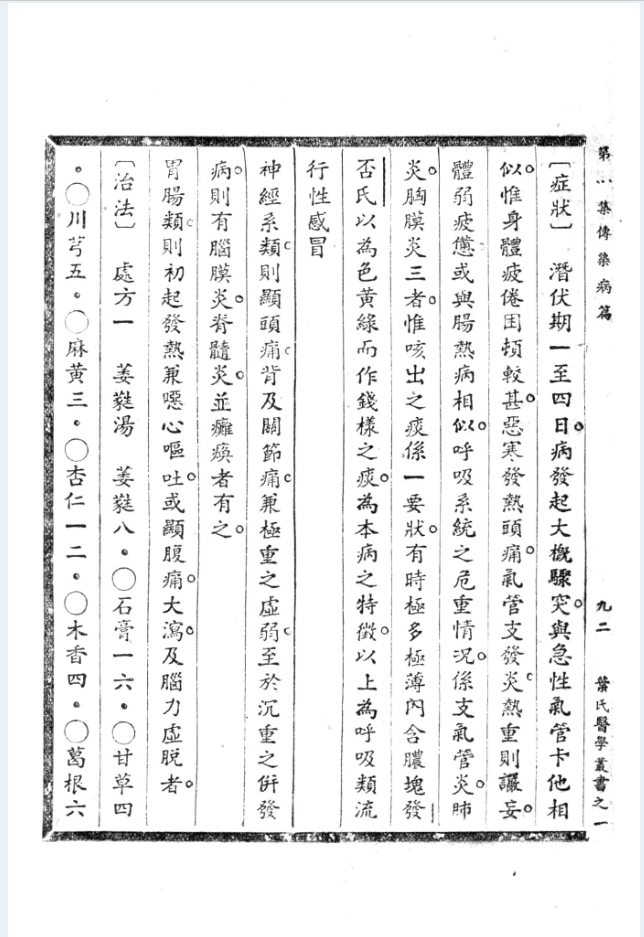 第一集傳染病篇　九二　葉氏醫學叢書之一
〔症狀〕　潛伏期一至四日。病發起大概驟突。與急性氣管卡他相
似。惟身體疲倦困頓較甚。惡寒發熱頭痛。氣管支發炎。熱重則讝妄。
體弱疲憊或與腸熱病相似。呼吸系統之危重情况。係支氣管炎。肺
炎。胸膜炎三者。惟咳出之痰係一要狀。有時極多極薄內含膿塊發
否氏以為色黃綠而作錢樣之痰。為本病之特徵。以上為呼吸類流
行性感冒
神經系類。則顯頭痛。背及關節痛。兼極重之虛弱。至於沉重之倂發
病。則有腦膜炎。脊髓炎。並癱瘓者有之。
胃腸類。則初起發熱兼噁心嘔吐。或顯腹痛。大瀉。及腦力虛脫者。
〔治法〕　處方一　姜蕤湯　姜蕤八・〇石膏一六・〇甘草四
・〇川芎五・〇麻黃三・〇杏仁一二・〇木香四・〇葛根六